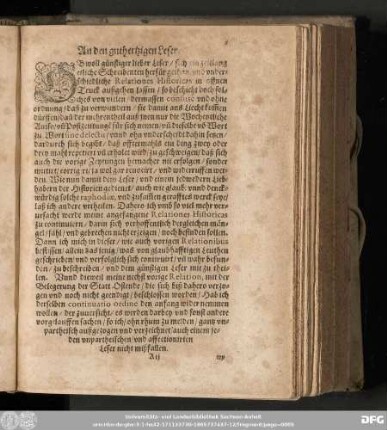 An den gutherzigen Leser.
Ob woll günstiger lieber Leser / sich ein zeitlang
etliche Scheibenten herfür gethan und under-
schiedliche Relationes Historicas in offnen
Truck außgehen lassen / so beschicht doch sol-
ches von vielen / dermassen confuse und ohne
ordnung / daß zu verwundern / sie damit ans Liecht kommen
dürffen / daß der mehrentheil auß zwen nur die Wochentliche
Aviso / uñ Postzeitungẽ für sich nemẽ / uñ dieselbẽ võ Wort
zu Wort ine describa / und ohn underscheid dahin setzen /
dardurch sich begibt / daß offtermahls ein ding zwey oder
drey mahl repetiert uñ erholet wird / zu geschweigen / daß sich
auch die vorige Zeytungen hernacher nit erfolgen / sonder
wittert / sortig rt / ja wol gar revocirt / und widerruffen wer-
den. Wie nun damit dem Leser / und einem jedwedern Lieb-
habern der Historiũ gedienet / auch wie glaub: vund denck-
würdig solche raphodiæ, und zusamen geraffies werck seye /
laß ich andere urtheilen. Dahero ich umb so viel mehr ver-
ursacht werde meine angefangene Relationes Historicas
zu continuiern / darin sich verhoffentlich dergleichen män-
gel / fähl / und gebrechen nicht erzeigen / noch befinden sollen.
Dann ich mich in dieser / wie auch vorigen Relationibus
beflissen / allein das jenig / was von glaubhafftigen Leuthen
geschrieben / und verfolglich sich continuirt / uñ wahr befun-
den / zu beschreiben / und dem günstigen Leser mit zu thei-
len. Vund dieweil meine nechst vorige Relation, mit der
Belegerung der Statt Ostende / die sich biß dahero verzo-
gen und noch nicht geendigt / beschlossen worden / Hab ich
derselben continuatio ordine den anfang wider nemmen
wollen / der zuversicht / es werden darbey und sonst andere
vorgelauffen sachen / so ich / ohn rhum zu melden / gantz un-
partheisch außgezogen und verzeichnet / auch einem je-
den unpartheilschen und affectionirten
Leser nicht mißfallen.
A ij
Universitäts- und Landesbibliothek Sachsen-Anhalt
DFG